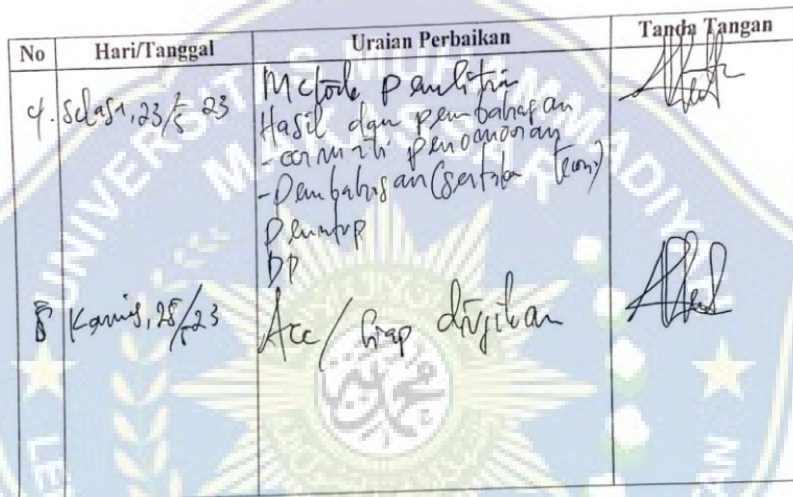 No Hari/Tanggal Uraian Perbaikan Tanda Tangan
4. Selasa, 23/5 23 Metode penelitian
Hasil dan pembahasan
- cermati penomoran
- Pembahasan (sertakan teori)
Penutup
DP
5 Kamis, 25/5 23 Acc / Siap diujikan
UNIVERSITAS MUHAMMADIYAH
MAKASSAR